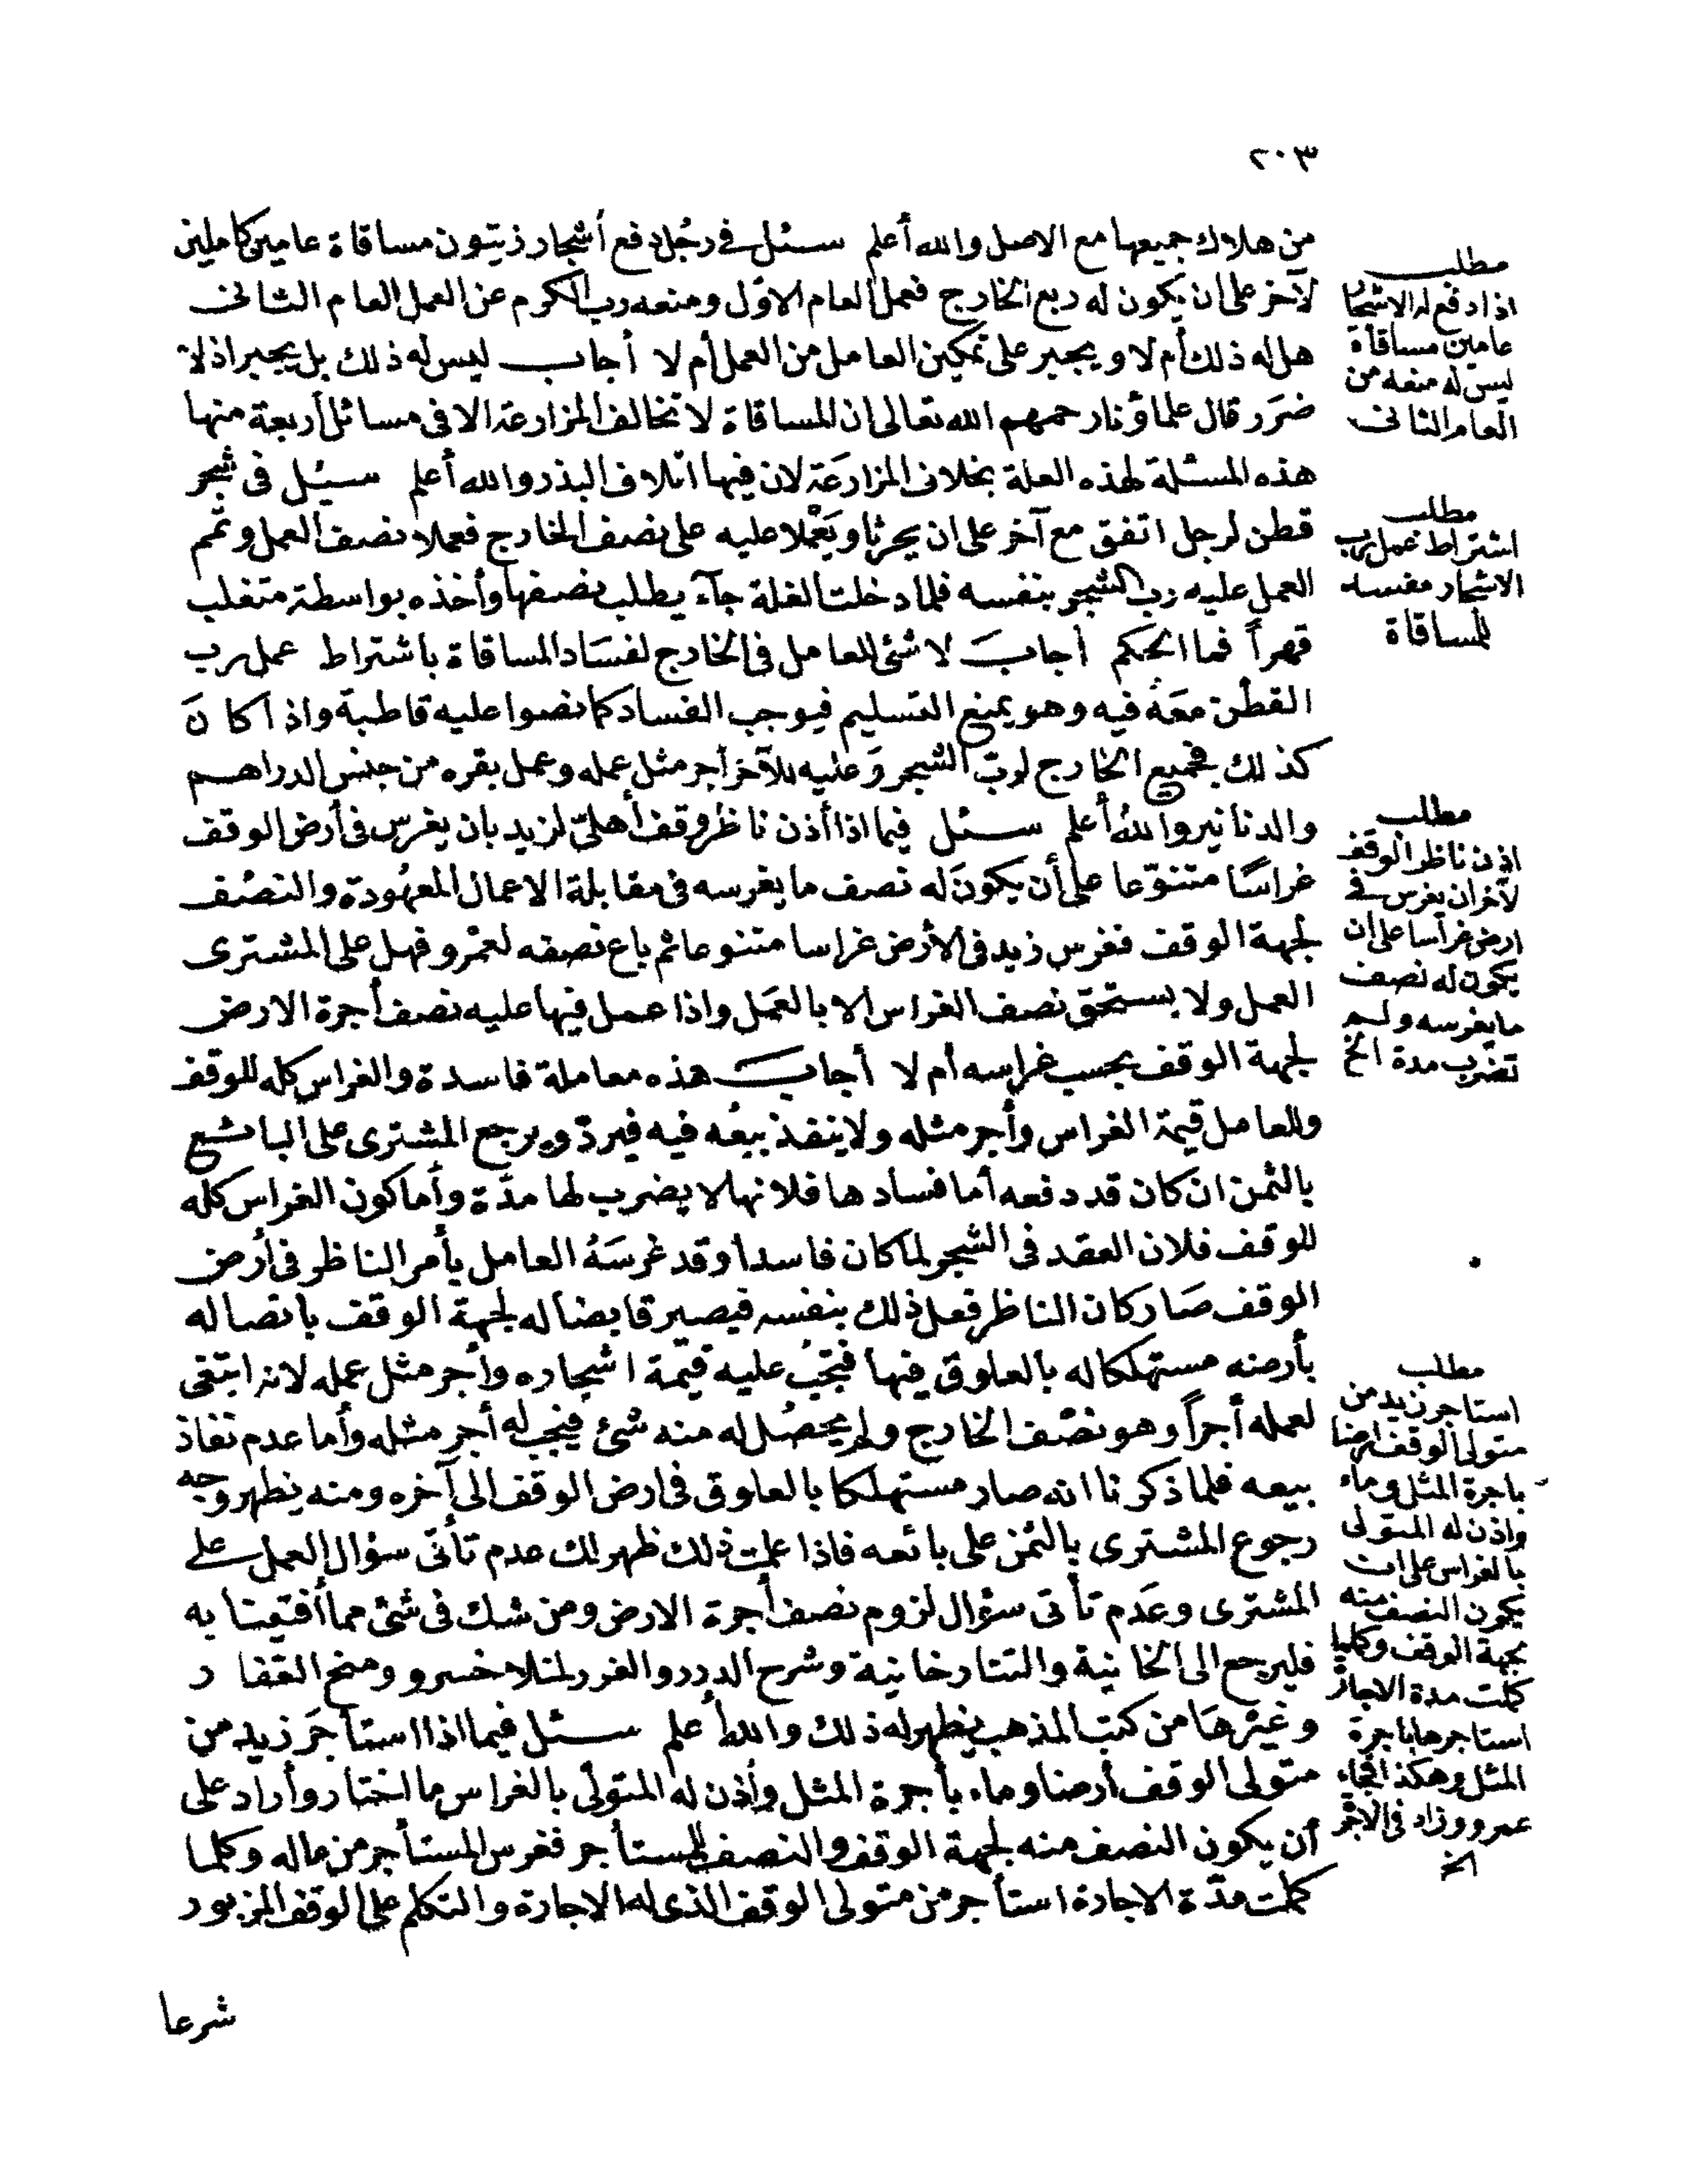 ٢٠٣
من هلاك جميعها مع الاصل والله أعلم سئل في رجل دفع أشجار زيتون مساقاة عامين كاملين
لآخر على ان يكون له ربع الخارج فعمل العام الاوّل ومنعه رب الكرم عن العمل العام الثانى
هل له ذلك أم لا ويجبر على تمكين العامل من العمل أم لا أجاب ليس له ذلك بل يجبر اذ لا
ضرَر قال علماؤنا رحمهم الله تعالى ان المساقاة لا تخالف المزارعة الا فى مسائل أربعة منها
هذه المسئلة لهذه العلة بخلاف المزارعَة لان فيها اتلاف البذر والله أعلم سئِل فى شجر
قطن لرجل اتفق مع آخر على ان يحرثا ويَعْملا عليه على نصف الخارج فعملا نصف العمل وتمم
العمل عليه رب الشجر بنفسه فلما دخلت الغلة جآء يطلب نصفها وأخذه بواسطة متغلب
قهراً فما الحكم أجابَ لا شئ للعامل فى الخارج لفسَاد المساقاة باشتراط عمل رب
القطن معَه فيه وهو يمنع التسليم فيوجب الفساد كما نصوا عليه قاطبة واذا كانَ
كذلك فجميع الخارج لربّ الشجر وَعليه للآخر أجر مثل عمله وعمل بقره من جنس الدراهم
والدنانير واللهُ أعلم سئل فيما اذا أذن ناظر وقف أهلىّ لزيد بان يغرس فى أرض الوقف
غراسًا متنوّعا على أن يكونَ له نصف ما يغرسه فى مقابلة الاعمال المعهُودة والنصْف
لجهة الوقف فغرس زيد فى الأرض غراسا متنوعا ثم باع نصفه لعمْرو فهل على المشترى
العمل ولا يستحق نصف الغراس الا بالعَمل واذا عمل فيها عليه نصف أجرة الارض
لجهة الوقف بحسب غراسه أم لا أجابَ هذه معاملة فاسدة والغراس كله للوقف
وللعامل قيمة الغراس وأجر مثله ولا ينفذ بيعُه فيه فيردّ ويرجع المشترى على البائع
بالثمن ان كان قد دفعه أما فسادها فلانها لا يضرب لها مدّة وأما كون الغراس كله
للوقف فلان العقد فى الشجر لما كان فاسدا وقد غرسَهُ العامل بأمر الناظر فى أرض
الوقف صَار كان الناظر فعل ذلك بنفسه فيصير قابضا له لجهة الوقف باتصاله
بأرضه مستهلكا له بالعلوق فيها فتجَبُ عليه قيمة اشجاره وأجر مثل عمله لانه ابتغى
لعمله أجراً وهو نصْف الخارج ولم يحصُل له منه شئ فيجب له أجر مثله وأما عدم نفاذ
بيعه فلما ذكرنا انه صار مستهلكا بالعلوق فى ارض الوقف الى آخره ومنه يظهر وجه
رجوع المشترى بالثمن على بائعه فاذا علمت ذلك ظهر لك عدم تأتّى سؤال العمل على
المشترى وعَدم تأتى سؤال لزوم نصف أجرة الارض ومن شك فى شئ مما أفتينا به
فليرجع الى الخانية والتتارخانية وشرح الدرر والغرر لمنلا خسرو ومنح الغفار
وغيْرهَا من كتب المذهب يظهر له ذلك والله أعلم سئل فيما اذا استأجَر زيد من
متولى الوقف أرضا وماء بأجرة المثل وأذن له المتولّى بالغراس ما اختار وأراد على
أن يكون النصف منه لجهة الوقف والنصف للمستأجر فغرس المستأجر من ماله وكلما
كملت مدّة الاجارة استأجر من متولى الوقف الذى له الاجارة والتكلم على الوقف المزبور
شرعا
مطلب
اذا دفع له الاشجار
عامين مساقاة
ليس له منعه من
العام الثانى
مطلب
اشتراط عمل رب
الاشجار مفسد
للمساقاة
مطلب
اذن ناظر الوقف
لآخر ان يغرس فى
ارض غراسا على ان
يكون له نصف
ما يغرسه ولم
تضرب مدة الخ
مطلب
استاجر زيد من
متولى الوقف ارضا
باجرة المثل وماء
واذن له المتولى
بالغراس على ان
يكون النصف منه
لجهة الوقف وكلما
كملت مدة الاجارة
استاجرها باجرة
المثل وهكذا فجاء
عمرو وزاد فى الاجر
الخ